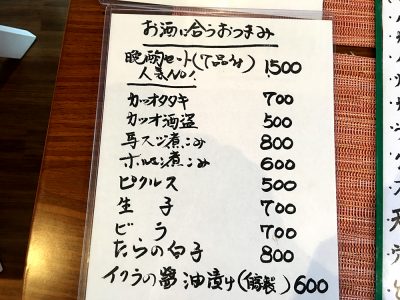 お酒に合うおつまみ
晩酌セット(7品付) 1,500
人気NO!
カツオタタキ 700
カツオ酒盗 500
馬スジ煮こみ 800
ホルモン煮こみ 600
ピクルス 500
生子 700
ビラ 700
たらの白子 800
イクラの醤油漬け(豚製) 600
天